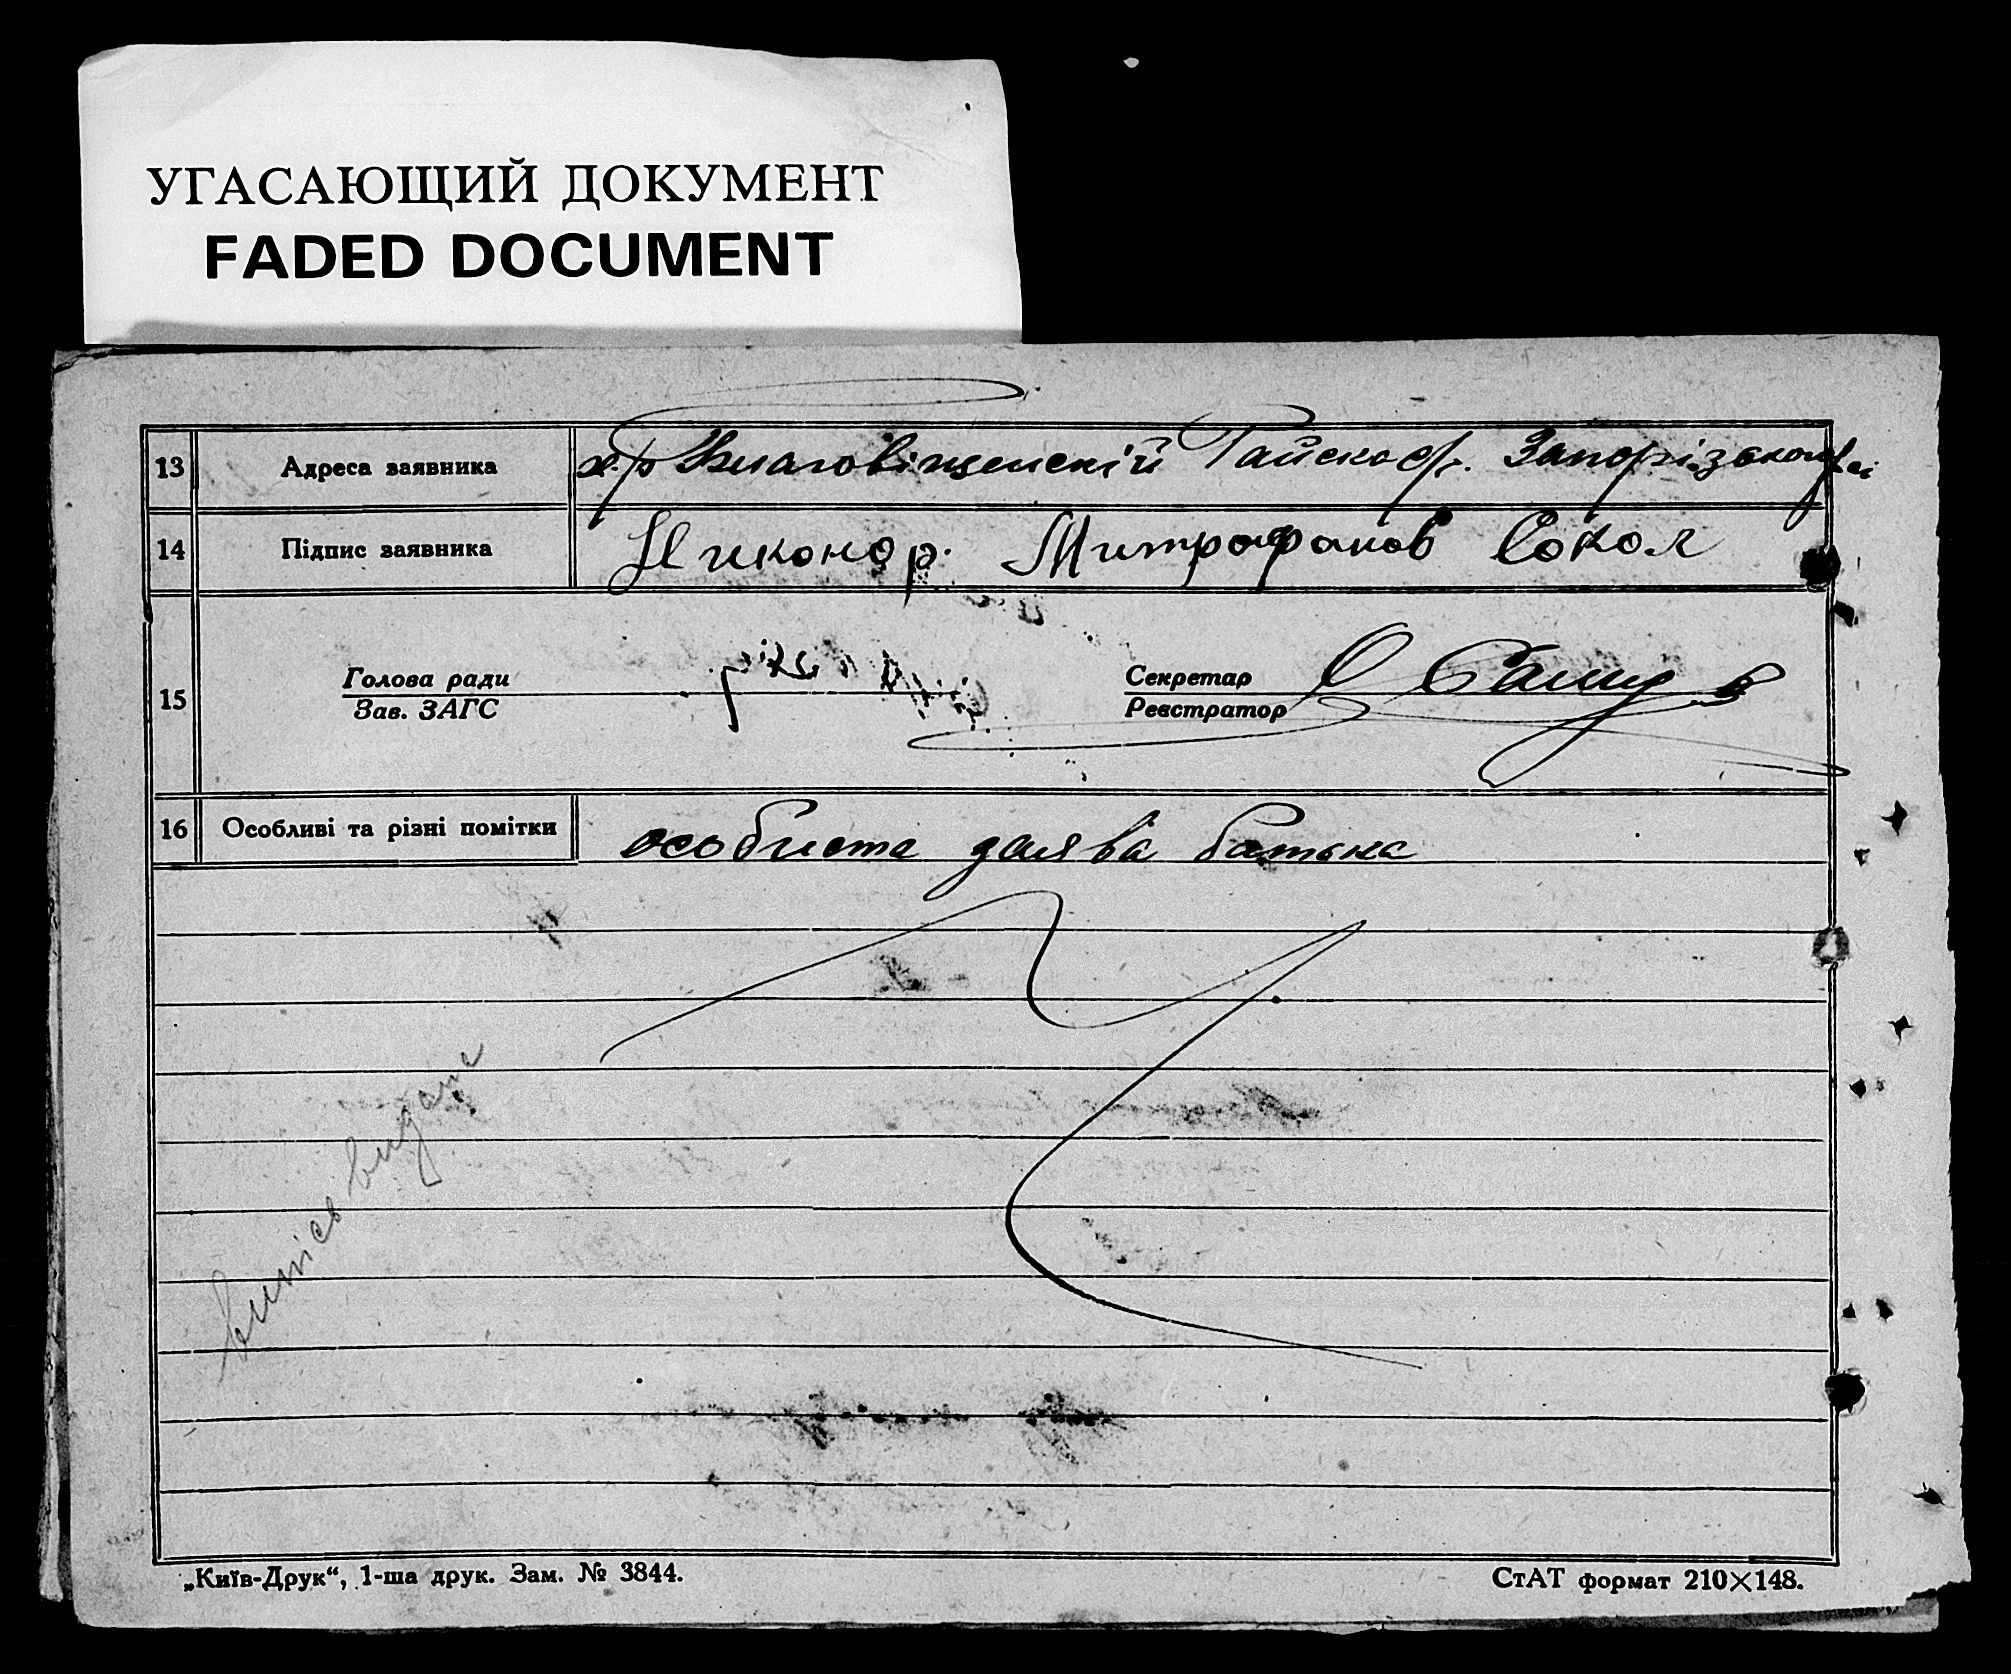 УГАСАЮЩИЙ ДОКУМЕНТ
FADED DOCUMENT
13 Адреса заявника Благовіщенскій Райско Запорізької
14 Підпис заявника Никонор. Митрофанов Сокол
15 Голова ради Секретар
Зав. ЗАГС Реєстратор
16 Особливі та різні помітки особиста заява батька
витяг видане
„Київ-Друк“, 1-ша друк. Зам. № 3844. СтАТ формат 210×148.